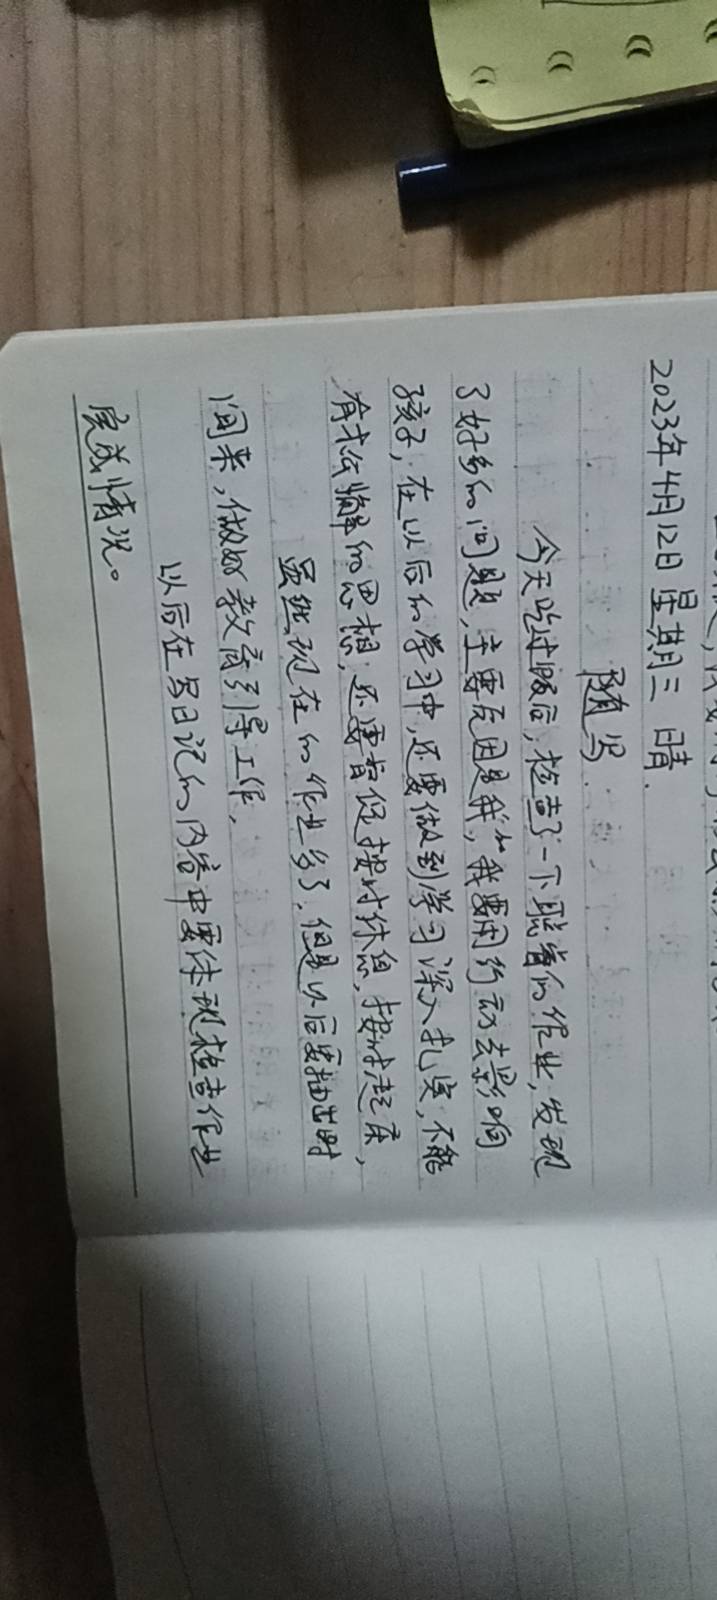 2023年4月12日 星期三 晴.
随写
今天吃过饭后,检查了一下聪睿的作业,发现
了好多的问题,主要原因是我,我要用行动去影响
孩子,在以后的学习中,还要做到学习深入扎实,不能
有什么懈的思想,还要督促按时休息,按时起床,
虽然现在的作业多了,但是以后要抽出时
间来,做好教育引导工作,
以后在写日记的内容中要体现检查作业
完成情况。